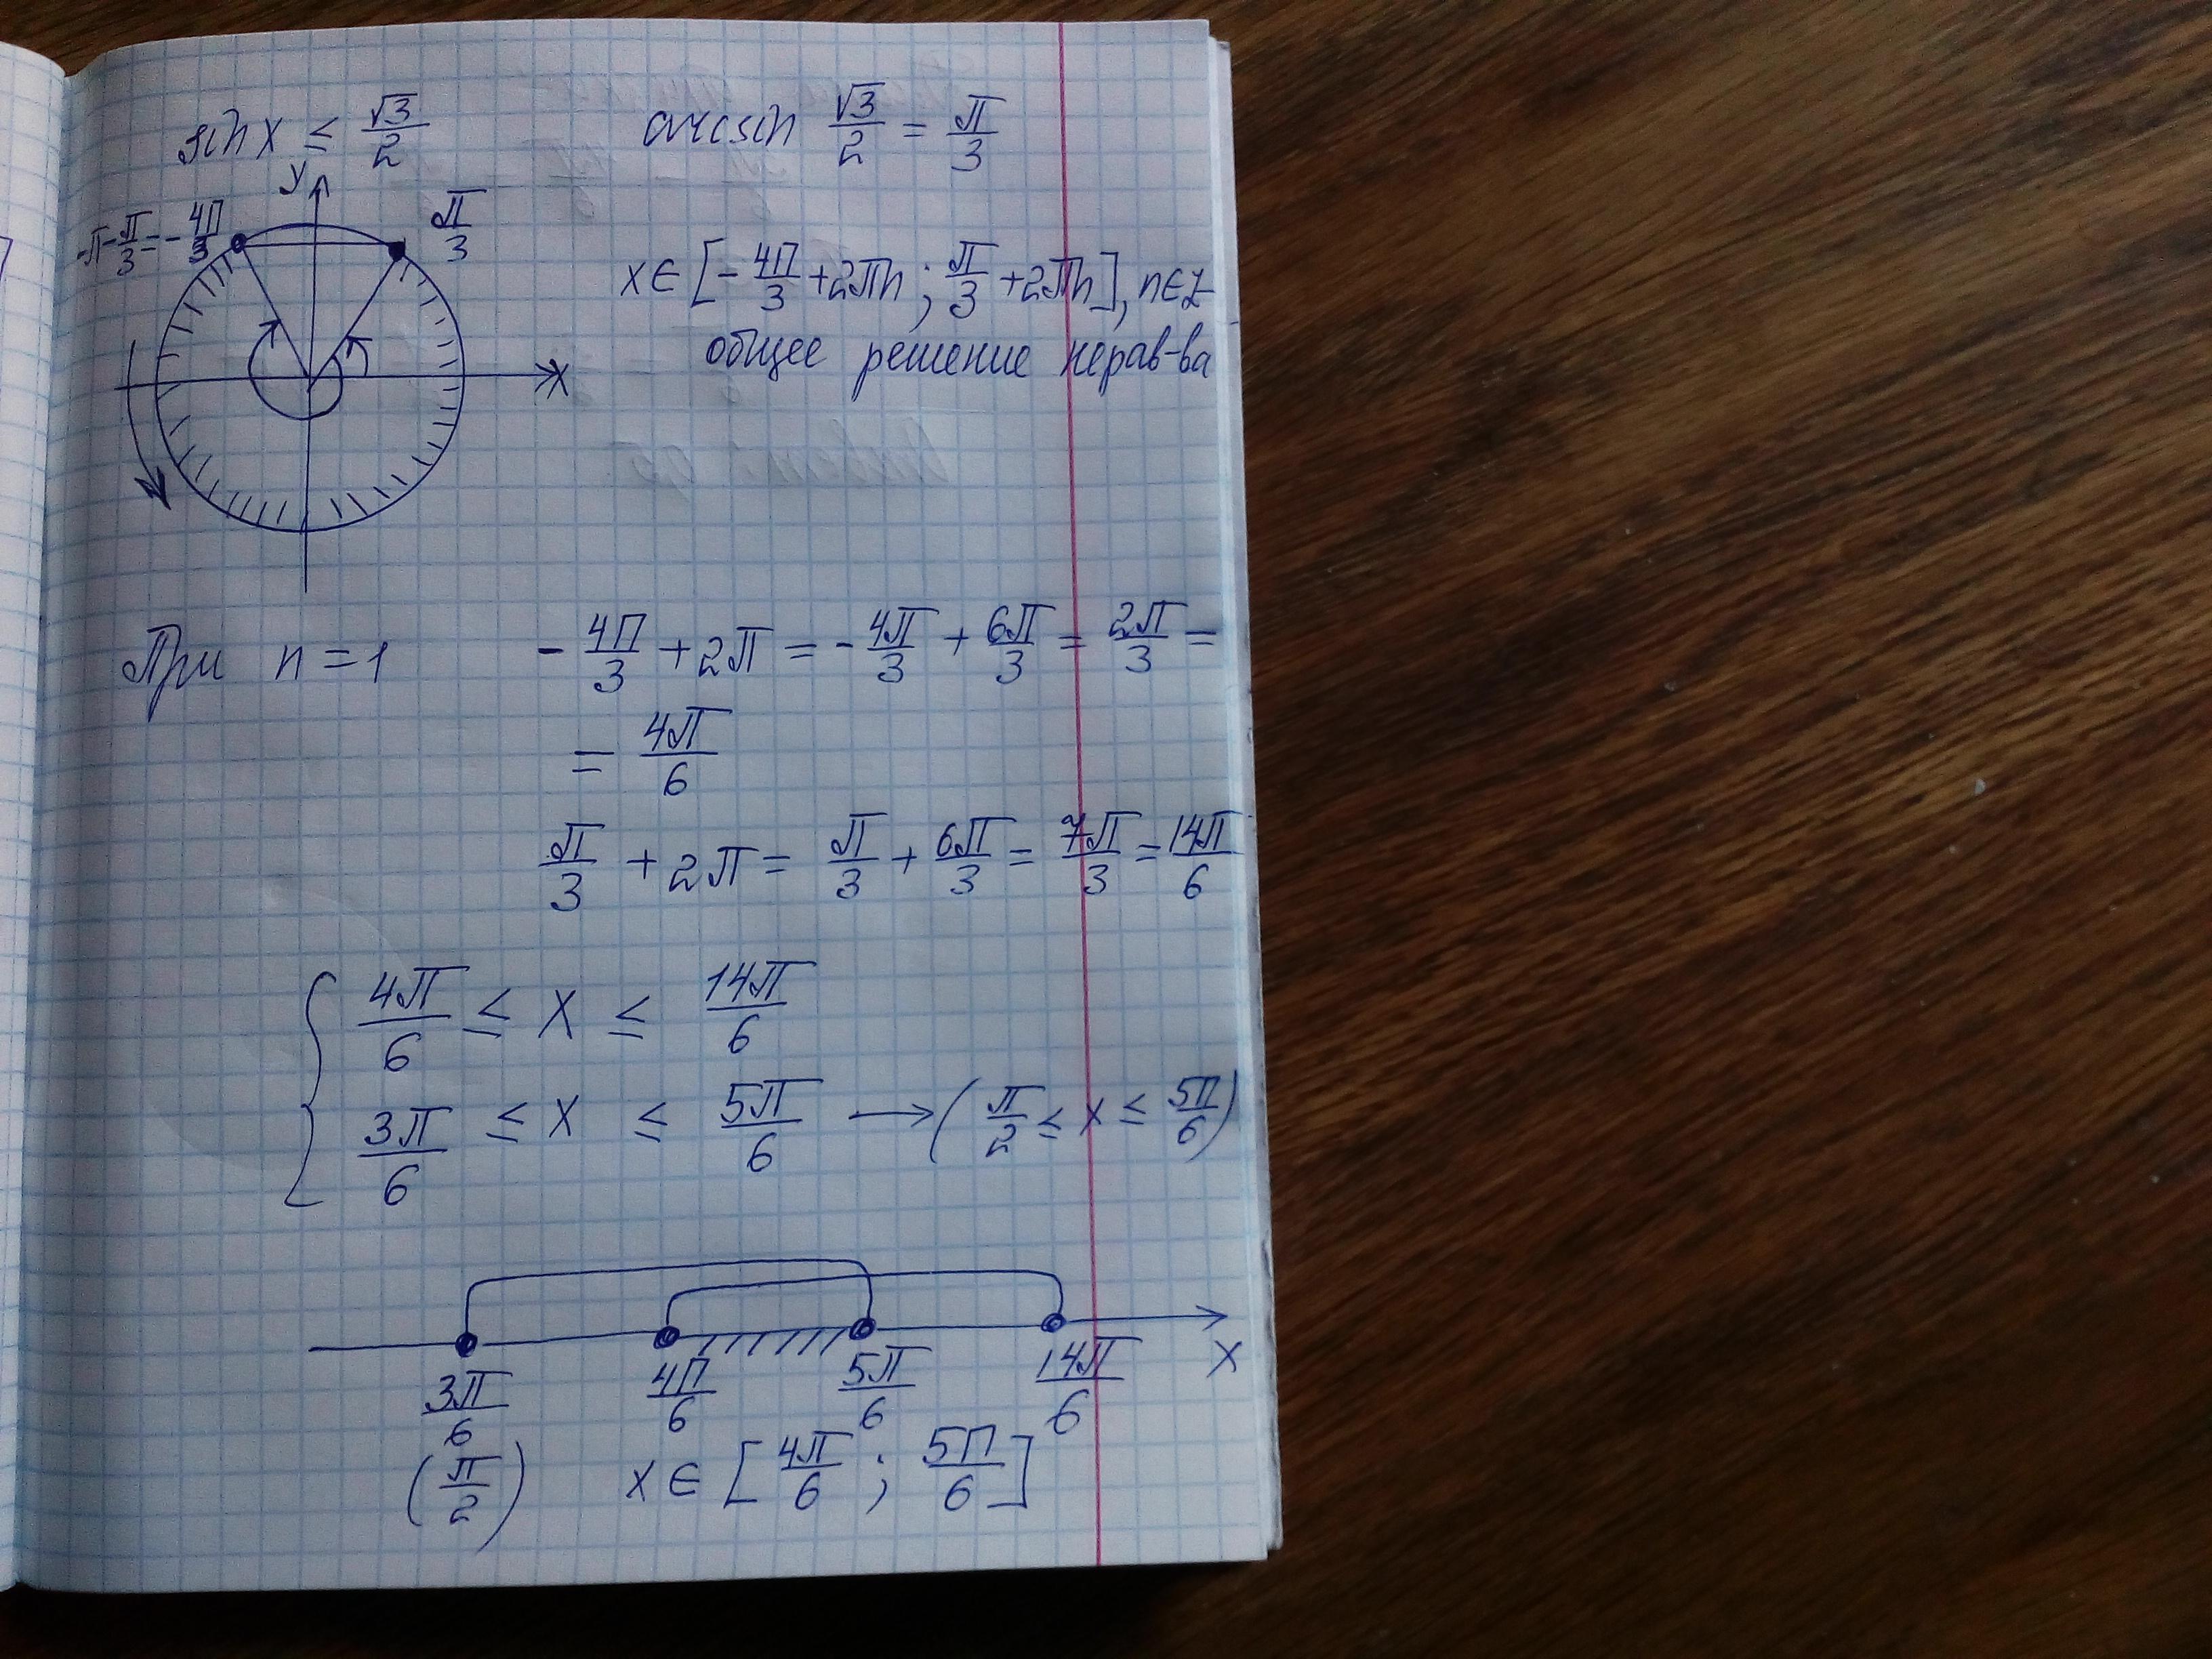 sin x ≤ √3/2    arcsin √3/2 = π/3
y
-π-π/3=-4π/3    π/3
x ∈ [-4π/3+2πn; π/3+2πn], n∈Z
общее решение нерав-ва
x
При n=1    -4π/3+2π = -4π/3 + 6π/3 = 2π/3 =
= 4π/6
π/3 + 2π = π/3 + 6π/3 = 7π/3 = 14π/6
{ 4π/6 ≤ x ≤ 14π/6
3π/6 ≤ x ≤ 5π/6 → (π/2 ≤ x ≤ 5π/6)
3π/6    4π/6    5π/6    14π/6    x
(π/2)    x ∈ [4π/6; 5π/6]